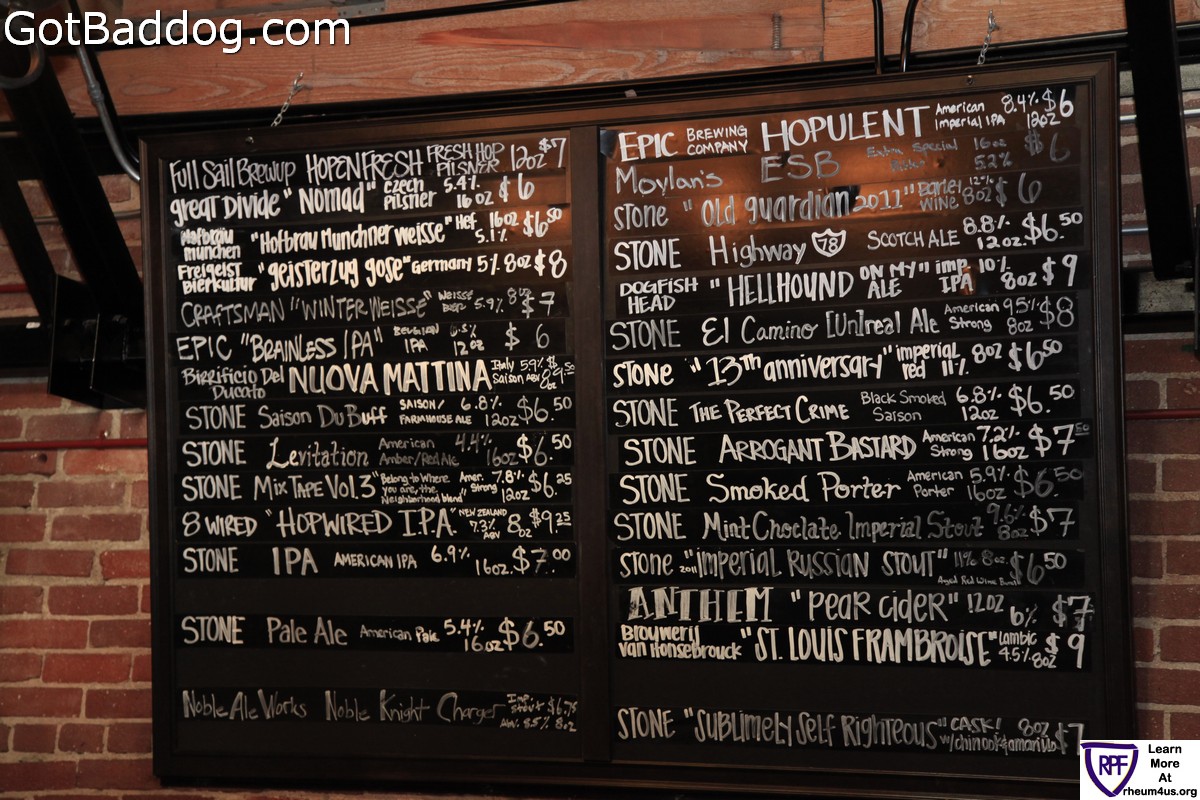 GotBaddog.com
Full Sail Brewup HOPENFRESH FRESH HOP PILSNER 12oz $7
great Divide "Nomad" Czech Pilsner 5.4% 16oz $6
Hofbrau Munchen "Hofbrau Munchner Weisse" Hef. 16oz 5.1% $6.50
Freigeist Bierkultur "geisterzug gose" Germany 5% 8oz $8
CRAFTSMAN "WINTER WEISSE" WEISSE BEER 5.9% 8oz $7
EPIC "BRAINLESS IPA" BELGIAN IPA 12oz $6
Birrificio Del Ducato NUOVA MATTINA Italy Saison 5.9% ABV 8oz $9.50
STONE Saison Du Buff SAISON/ FARMHOUSE ALE 6.8% 12oz $6.50
STONE Levitation American Amber/Red Ale 4.4% 16oz $6.50
STONE MIX TAPE VOL.3 "Belong to Where you are, the Neighborhood blend" Amer. Strong 7.8% 12oz $6.25
8 WIRED "HOPWIRED I.P.A." NEW ZEALAND 7.3% ABV 8oz $9.25
STONE IPA AMERICAN IPA 6.9% 16oz. $7.00
STONE Pale Ale American Pale 5.4% 16oz $6.50
Noble Ale Works Noble Knight Charger Imp. Stout $6.75 ABV. 8.5% 8oz
EPIC BREWING COMPANY HOPULENT American Imperial IPA 8.4% 12oz $6
Moylan's ESB Extra Special Bitter 16oz 5.2% $6
STONE "Old guardian 2011" Barley WINE 12% 8oz $6
STONE Highway 78 SCOTCH ALE 8.8% 12oz. $6.50
DOGFISH HEAD "HELLHOUND ON MY ALE" imp. IPA 10% 8oz $9
STONE El Camino [Un]real Ale American Strong 9.5% 8oz $8
STONE "13th anniversary" imperial red 11% 8oz $6.50
STONE THE PERFECT CRIME Black Smoked Saison 6.8% 12oz $6.50
STONE ARROGANT BASTARD American Strong 7.2% 16oz $7.50
STONE Smoked Porter American Porter 5.9% 16oz $6.50
STONE Mint Choclate Imperial Stout 9.6% 8oz $7
STONE 2011 "IMPERIAL RUSSIAN STOUT" 11% 8oz $6.50 Aged Red Wine
ANTHEM "PEAR CIDER" 12OZ 6% $7
Brouwerij van Honsebrouck "ST. LOUIS FRAMBROISE" Lambic 4.5% 8oz $9
STONE "SUBLIMELY SELF RIGHTEOUS" CASK! w/chinook & amarillo 8oz $7
RPF
Learn
More
At
rheum4us.org